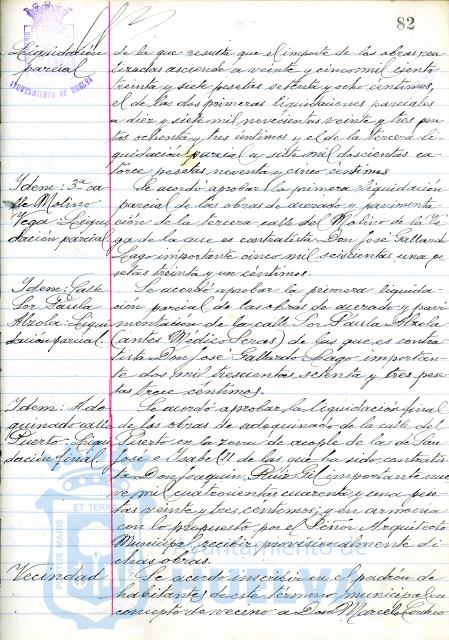 82
AYUNTAMIENTO DE HUELVA
Liquidación
parcial
de la que resulta que el importe de las obras rea-
lizadas asciende a veinte y cinco mil ciento
treinta y siete pesetas setenta y ocho céntimos,
el de las dos primeras liquidaciones parciales
a diez y siete mil novecientos veinte y tres pese-
tas ochenta y tres céntimos y el de la tercera li-
quidación parcial a siete mil doscientas ca-
torce pesetas noventa y cinco céntimos.
Idem: 3ª ca-
lle Molino
Vega: Liqui-
dación parcial
Se acordó aprobar la primera liquidación
parcial de las obras de acerado y pavimenta-
ción de la tercera calle del Molino de la Ve-
ga de la que es contratista Don José Gallardo
Lago importante cinco mil seiscientas una pe-
setas treinta y un céntimos.
Idem: Calle
Sor Paula
Alzola: Liqui-
dación parcial.
Se acordó aprobar la primera liquida-
ción parcial de las obras de acerado y pavi-
mentación de la calle Sor Paula Alzola
(antes Médico Seras) de las que es contra-
tista Don José Gallardo Lago importan-
te dos mil trescientas setenta y tres pese-
tas trece céntimos.
Idem: Ado-
quinado calle
Puerto: Liqui-
dación final
Se acordó aprobar la liquidación final
de las obras de adoquinado de la calle del
Puerto en la zona de acople de la de San
José e Isabel II de las que ha sido contratis-
ta Don Joaquín Ruiz Gil importante nue-
ve mil cuatrocientas cuarenta y una pese-
tas veinte y tres céntimos; y en armonía
con lo propuesto por el Señor Arquitecto
Municipal, recibir provisionalmente di-
chas obras.
Vecindad
Se acordó inscribir en el padrón de
habitantes de este término municipal en
concepto de vecino a Don Marcelo Cordero
PORTUS MARIS ET TERRAE
Ayuntamiento de
HUELVA